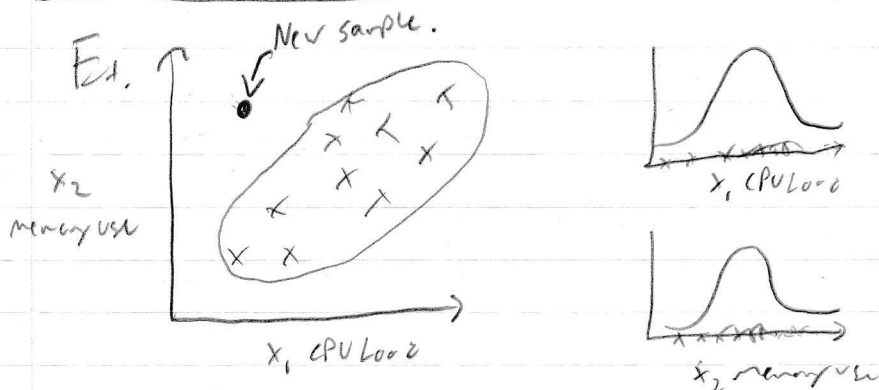 New sample.
Ex.
x2
memory use
x1 CPU Load
x1 CPU Load
x2 memory use